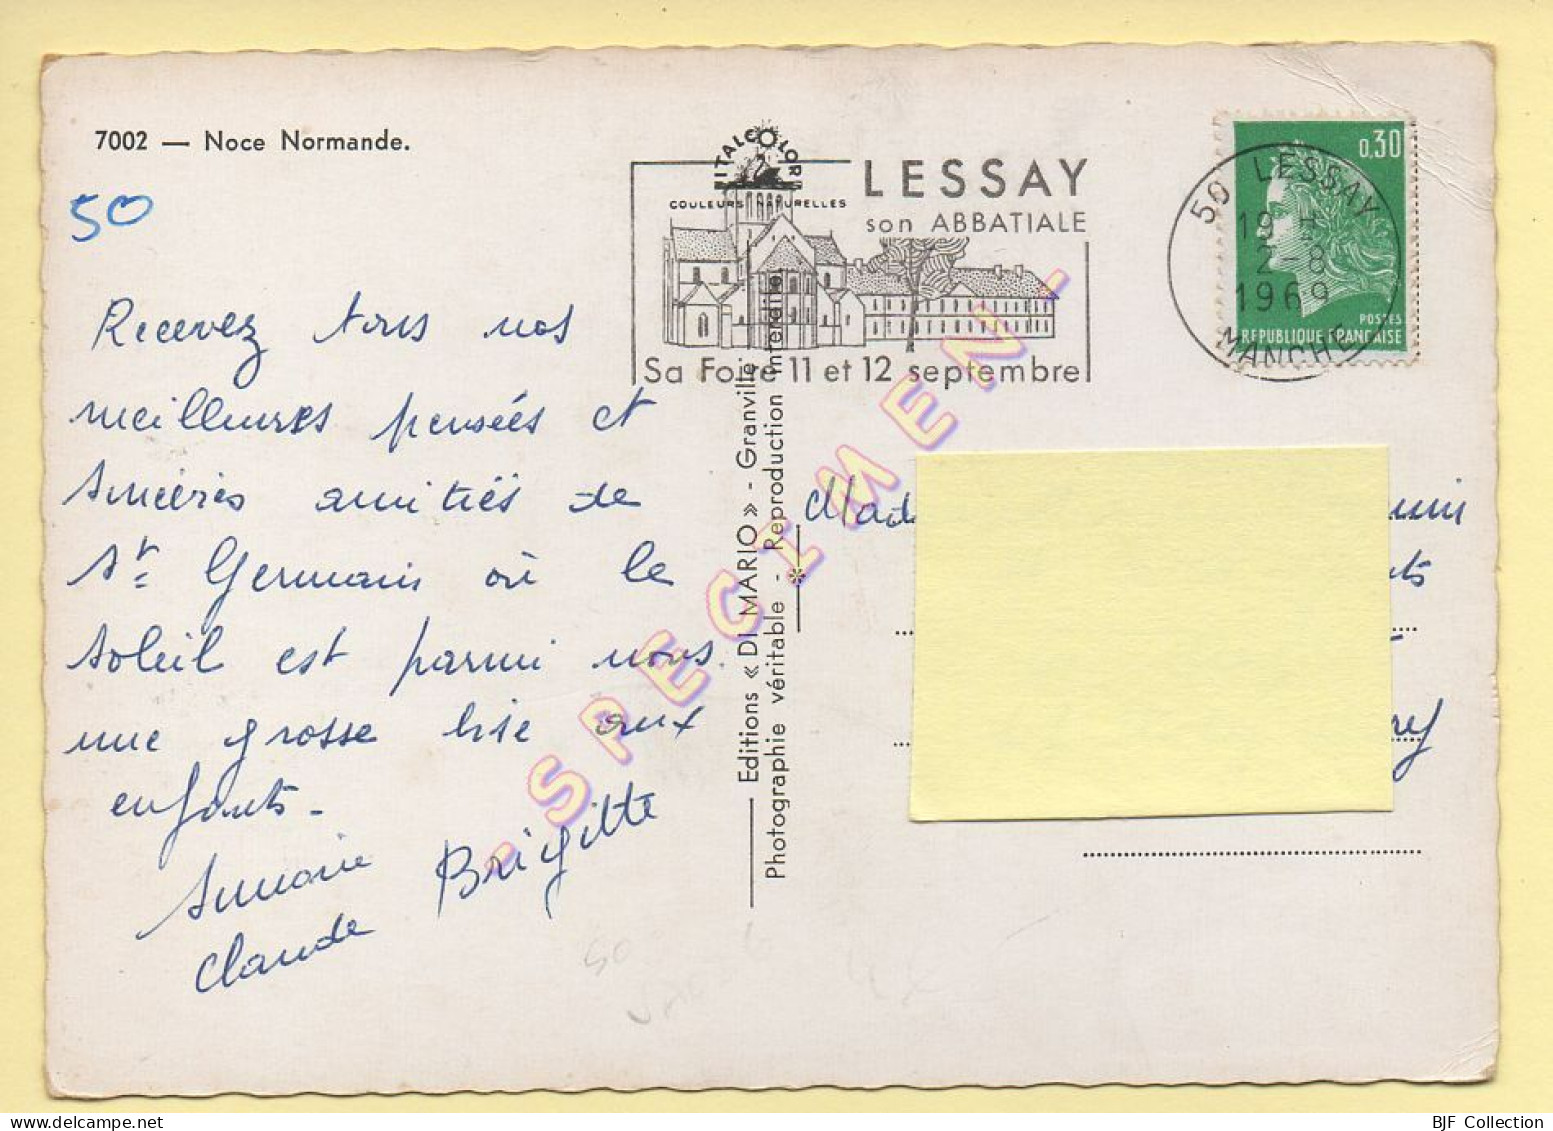 7002 — Noce Normande.
50
ITALCOLOR
COULEURS NATURELLES
LESSAY
son ABBATIALE
Sa Foire 11 et 12 septembre
50 LESSAY
19 H
2-8
1969
MANCHE
0,30
POSTES
REPUBLIQUE FRANÇAISE
Recevez tous nos
meilleures pensées et
sincères amitiés de
St Germain où le
soleil est parmi nous.
une grosse bise aux
enfants -
Simone Brigitte
Claude
Editions « DI MARIO » - Granville
Photographie véritable - Reproduction interdite
- SPECIMEN -
50
BJF Collection